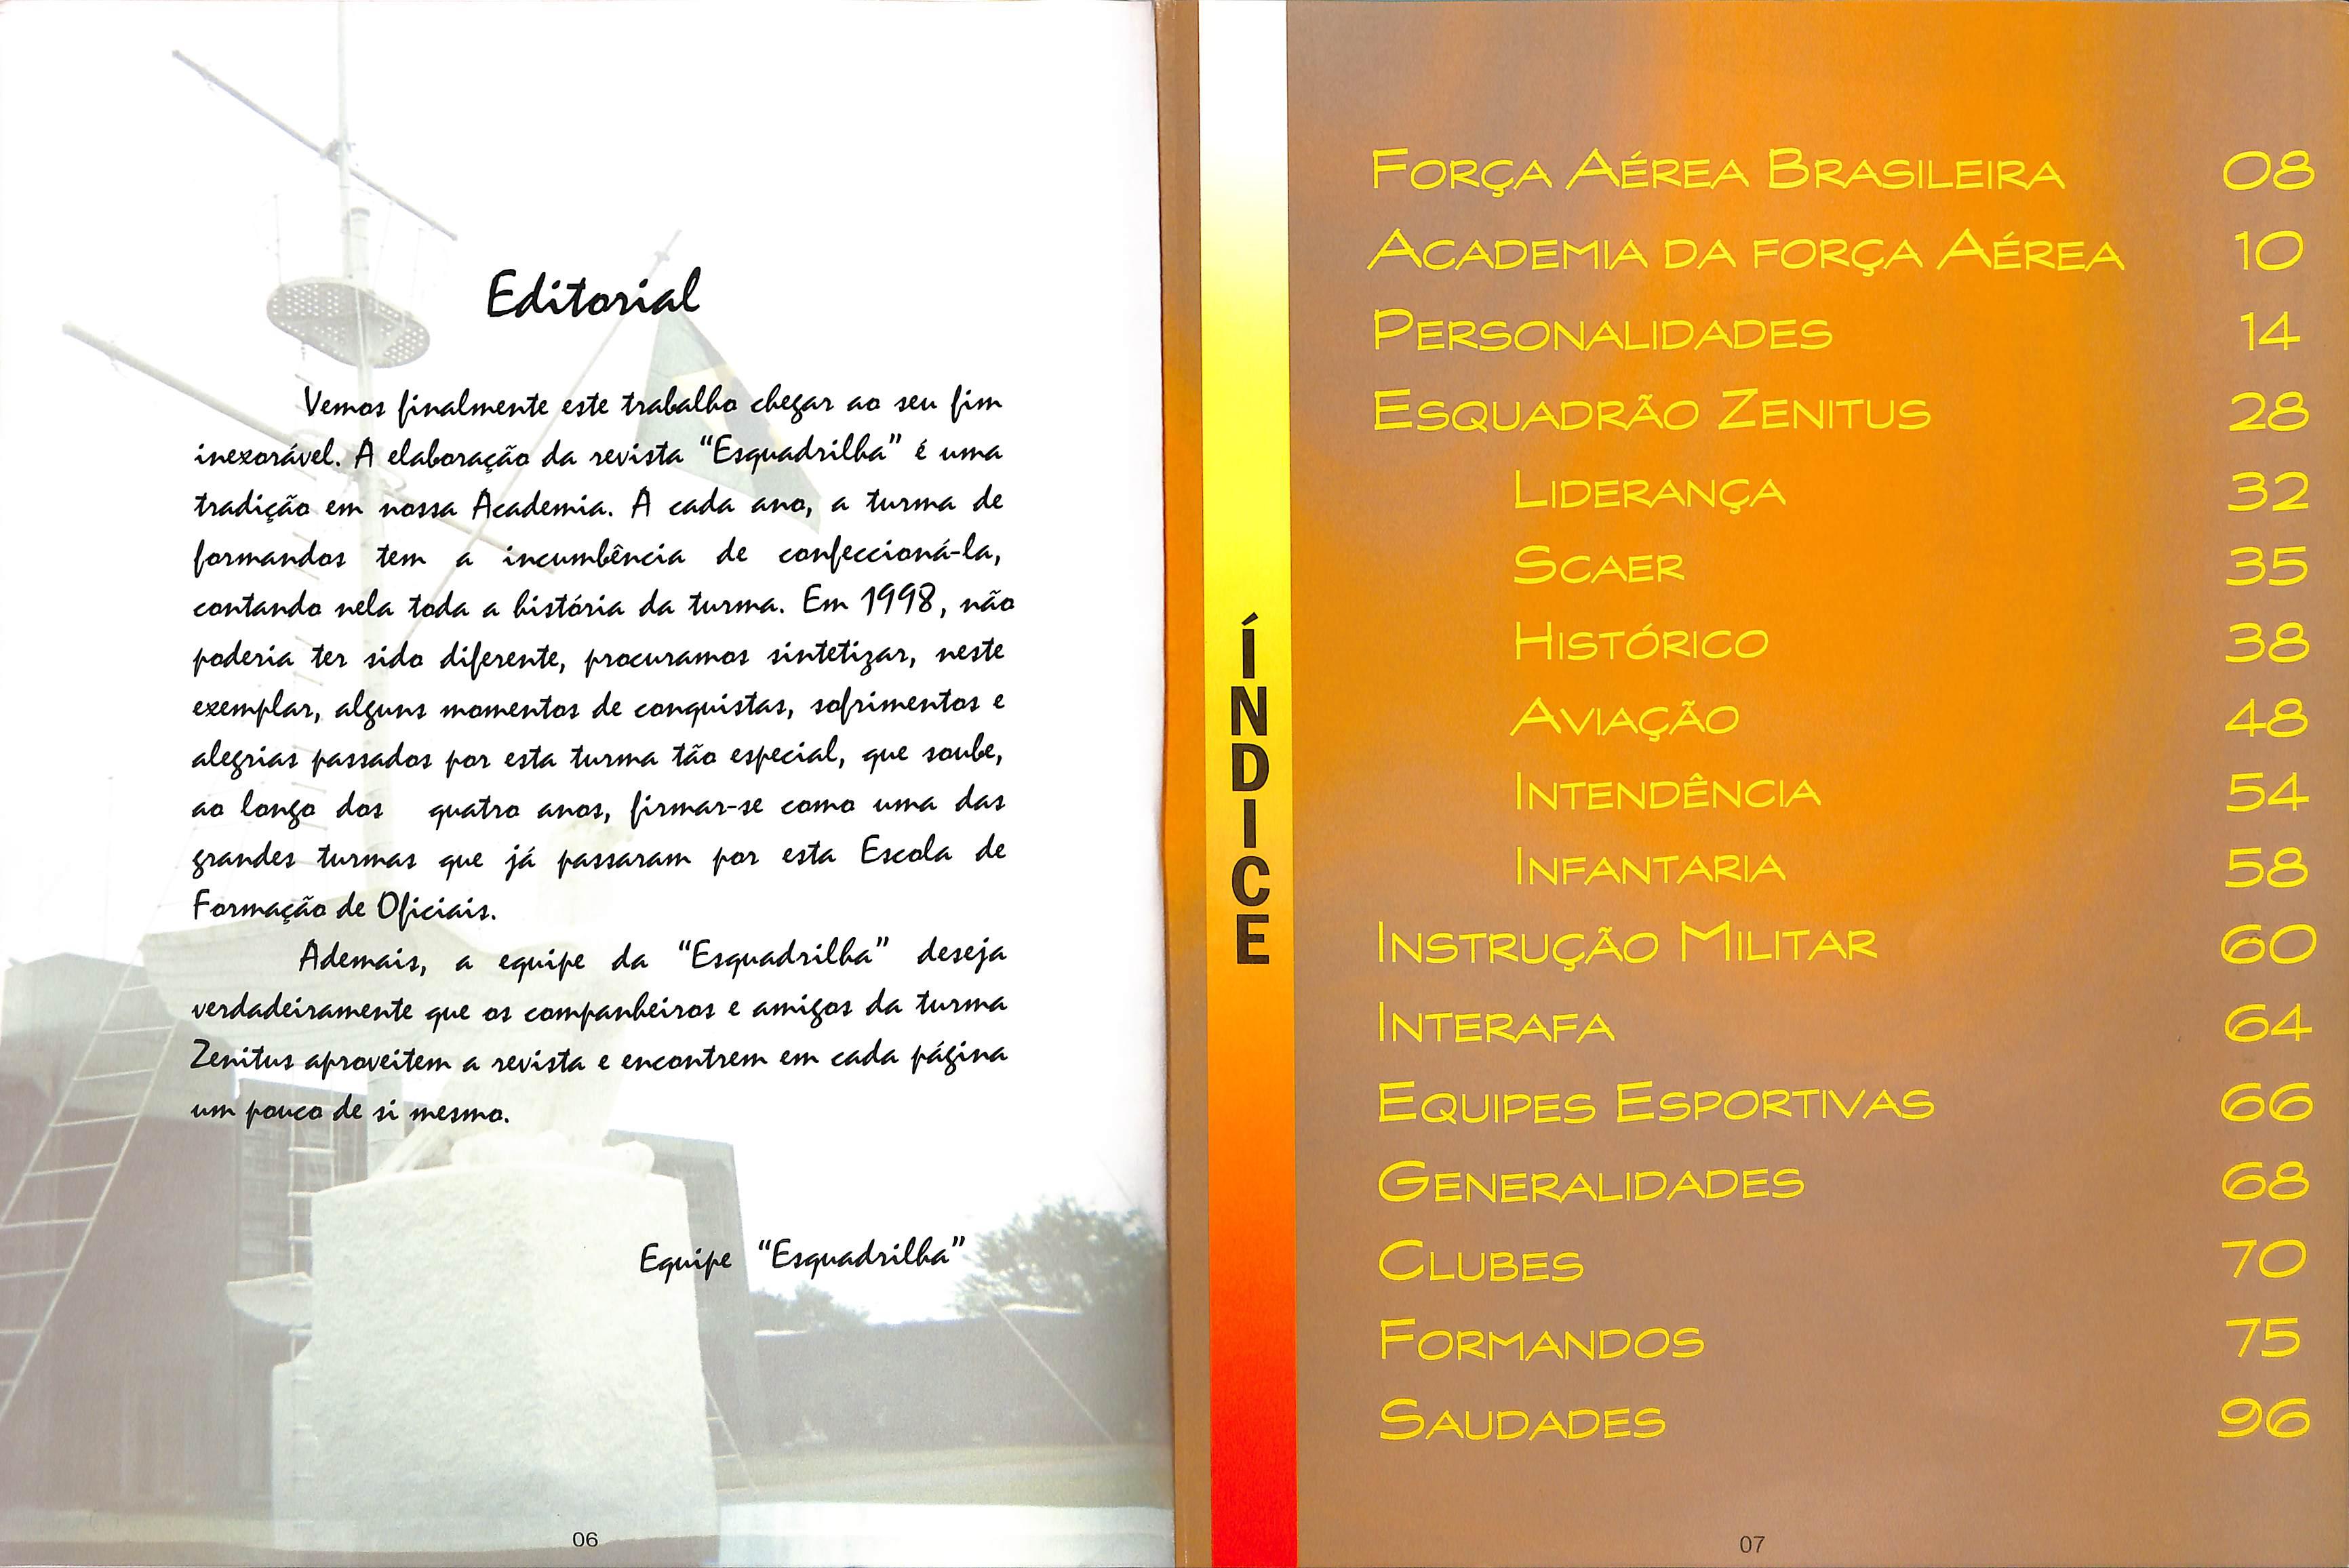 Editorial
Vemos finalmente este trabalho chegar ao seu fim
inexorável. A elaboração da revista “Esquadrilha” é uma
tradição em nossa Academia. A cada ano, a turma de
formandos tem a incumbência de confeccioná-la,
contando nela toda a história da turma. Em 1998, não
poderia ter sido diferente, procuramos sintetizar, neste
exemplar, alguns momentos de conquistas, sofrimentos e
alegrias passados por esta turma tão especial, que soube,
ao longo dos quatro anos, firmar-se como uma das
grandes turmas que já passaram por esta Escola de
Formação de Oficiais.
Ademais, a equipe da “Esquadrilha” deseja
verdadeiramente que os companheiros e amigos da turma
Zenitus aproveitem a revista e encontrem em cada página
um pouco de si mesmo.
Equipe “Esquadrilha”
06
ÍNDICE
FORÇA AÉREA BRASILEIRA 08
ACADEMIA DA FORÇA AÉREA 10
PERSONALIDADES 14
ESQUADRÃO ZENITUS 28
LIDERANÇA 32
SCAER 35
HISTÓRICO 38
AVIAÇÃO 48
INTENDÊNCIA 54
INFANTARIA 58
INSTRUÇÃO MILITAR 60
INTERAFA 64
EQUIPES ESPORTIVAS 66
GENERALIDADES 68
CLUBES 70
FORMANDOS 75
SAUDADES 96
07